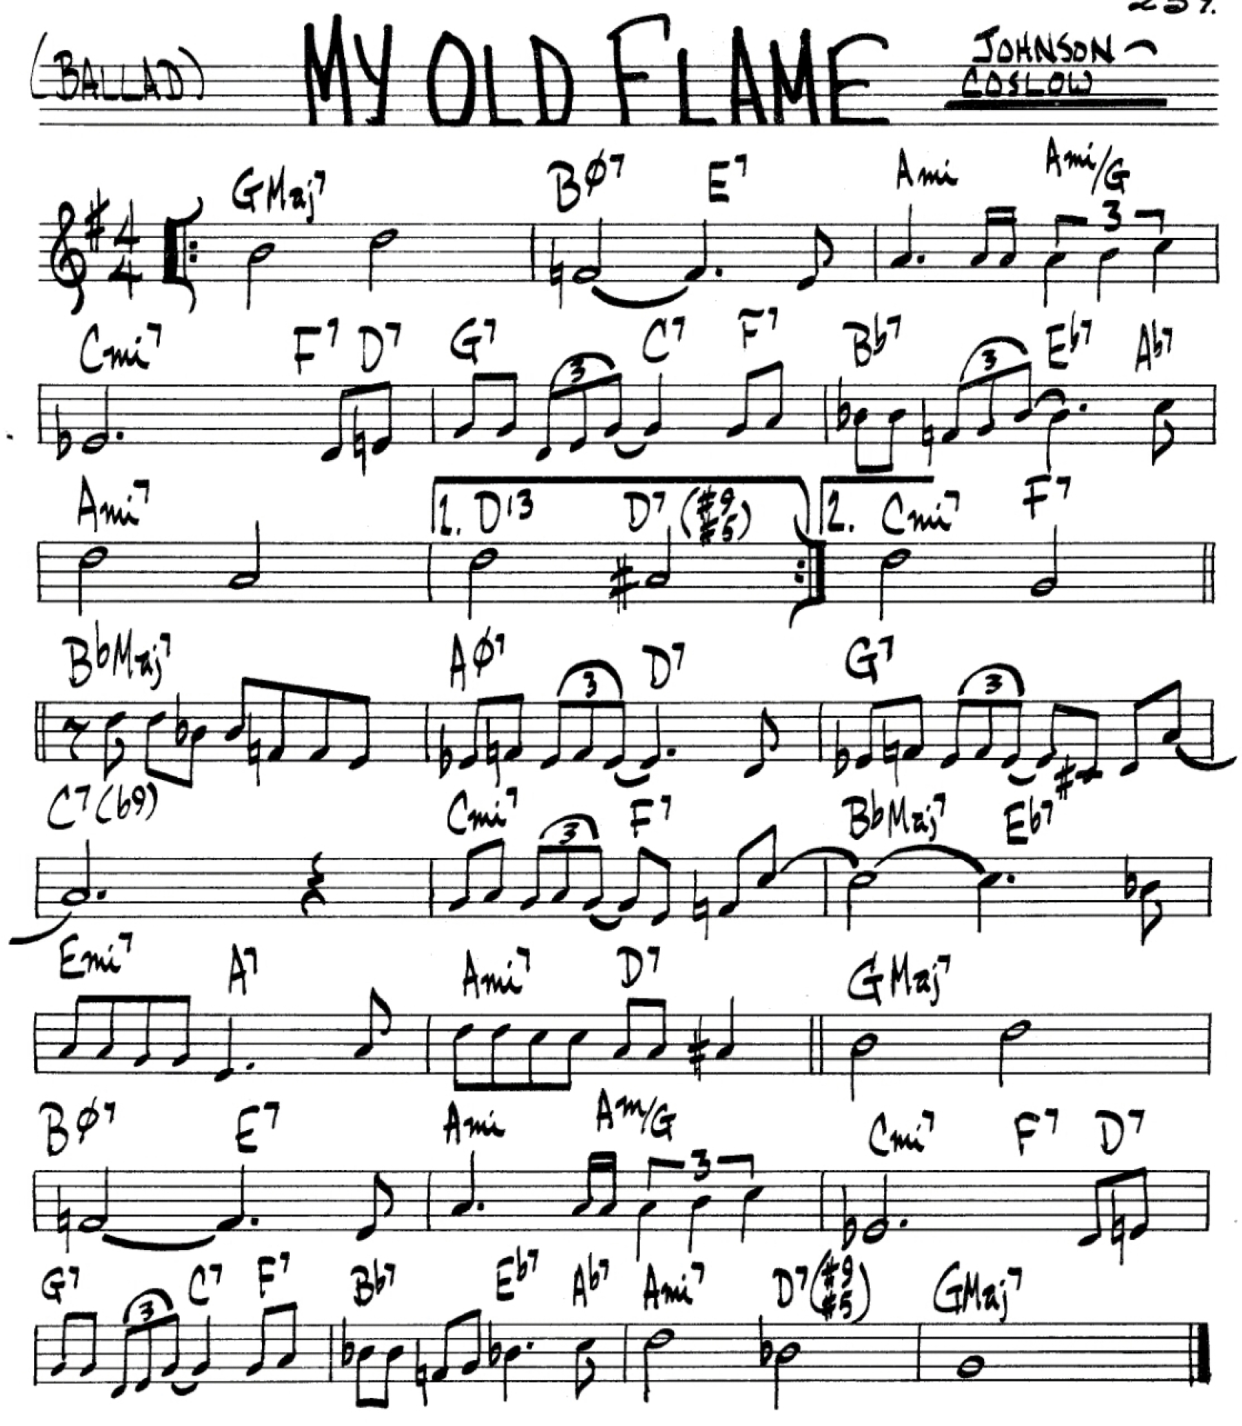 237.
(BALLAD) MY OLD FLAME JOHNSON -
COSLOW
GMaj7 BØ7 E7 Ami Ami/G
4 4 3
Cmi7 F7 D7 G7 C7 F7 Bb7 Eb7 Ab7
3 3
Ami7 1. D13 D7 (#9 #5) 2. Cmi7 F7
BbMaj7 AØ7 D7 G7
3 3
C7(b9) Cmi7 F7 BbMaj7 Eb7
3
Emi7 A7 Ami7 D7 GMaj7
BØ7 E7 Ami Am/G Cmi7 F7 D7
3
G7 C7 F7 Bb7 Eb7 Ab7 Ami7 D7(#9 #5) GMaj7
3